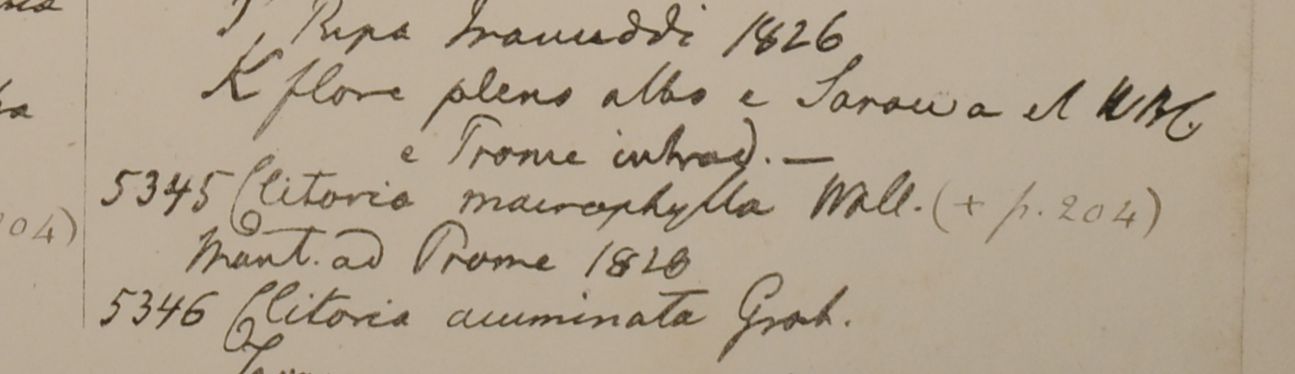 Ripa Irawaddi 1826
K flore pleno albo e Sarowa et HBC
e Prome introd. —
5345 Clitoria macrophylla Wall. (+ p. 204)
Mont. ad Prome 1826
5346 Clitoria acuminata Grah.
204)